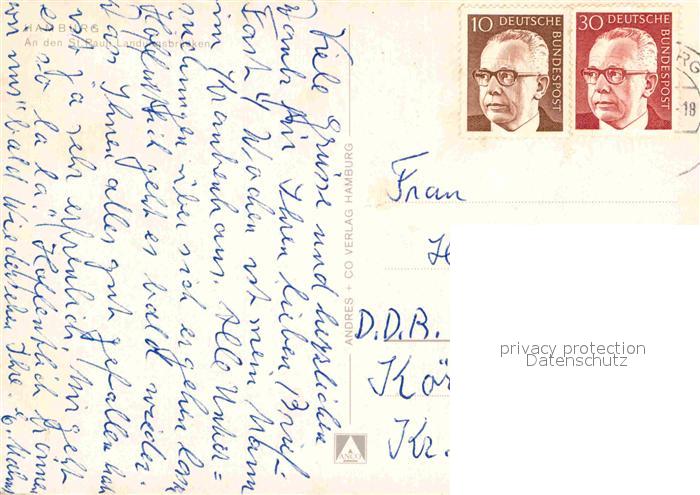 HAMBURG
An den St. Pauli Landungsbrücken
Viele Grüsse und herzlichen
Dank für Ihren lieben Brief.
Fast 4 Wochen ist mein Mann
im Krankenhaus. Alle Unter=
suchungen über sich ergehen lassen
Hoffentlich geht es bald wieder.
Das Ihnen alles gut gefallen hat
ist ja sehr erfreulich. Mir geht
es "so la la." Hoffentlich können
wir uns bald wiedersehen Ihre E.
ANDRES + CO VERLAG HAMBURG
ANCO
10 DEUTSCHE BUNDESPOST
30 DEUTSCHE BUNDESPOST
RG
-18
Frau
H
D.D.R.
Kr.
privacy protection
Datenschutz